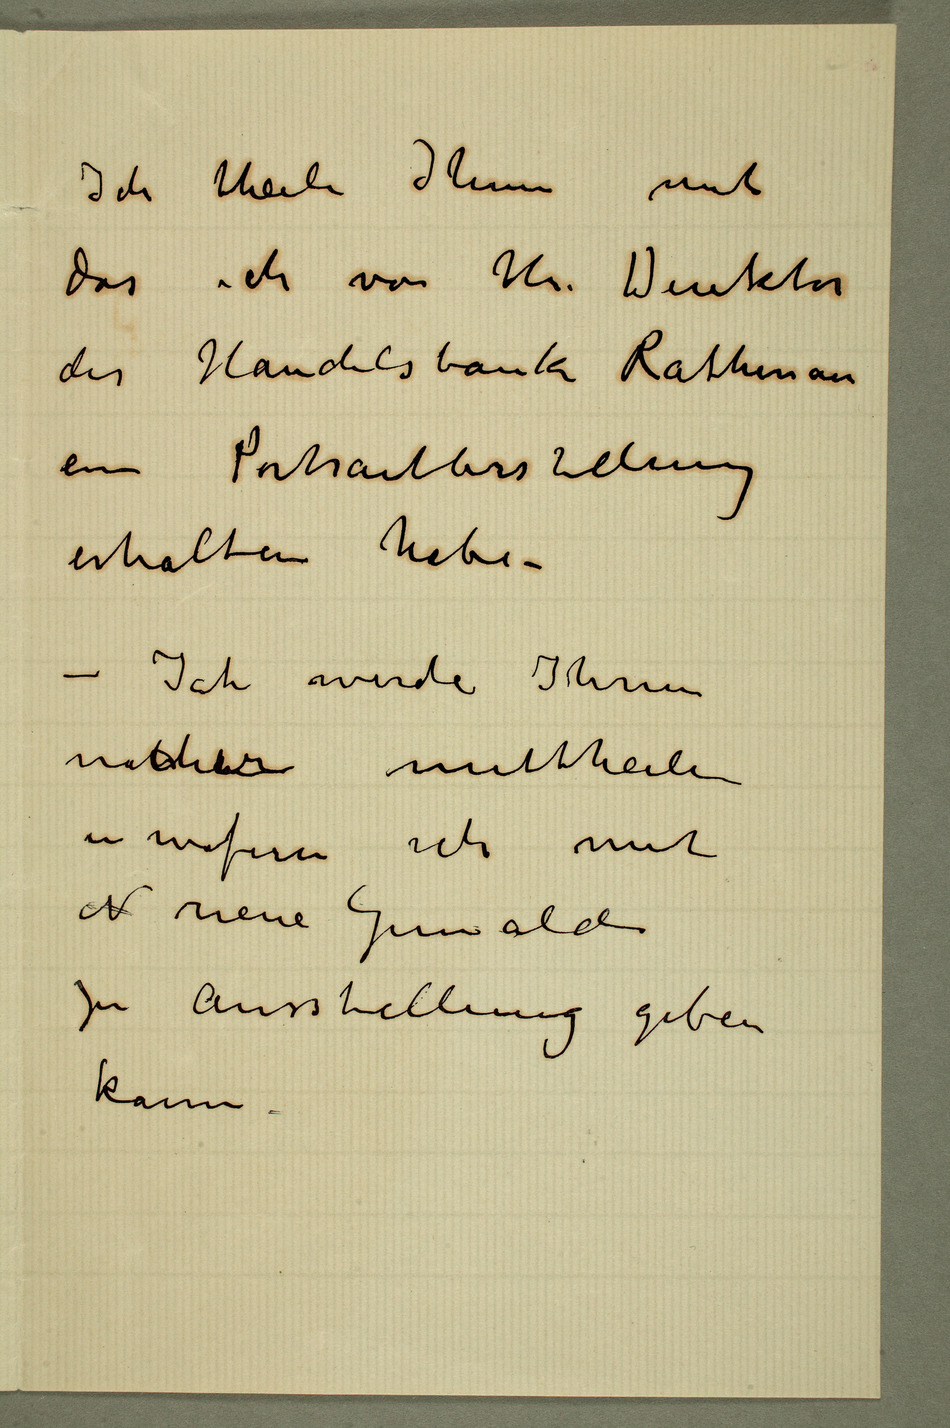 Ich theile Ihnen mit
das ich von Hr. Direktor
der Handelsbank Rathenau
ein Portraitbestellung
erhalten habe –
– Ich werde Ihnen
mittheilen
in wofern ich mit
neue Gemälde
zu Ausstellung geben
kann.